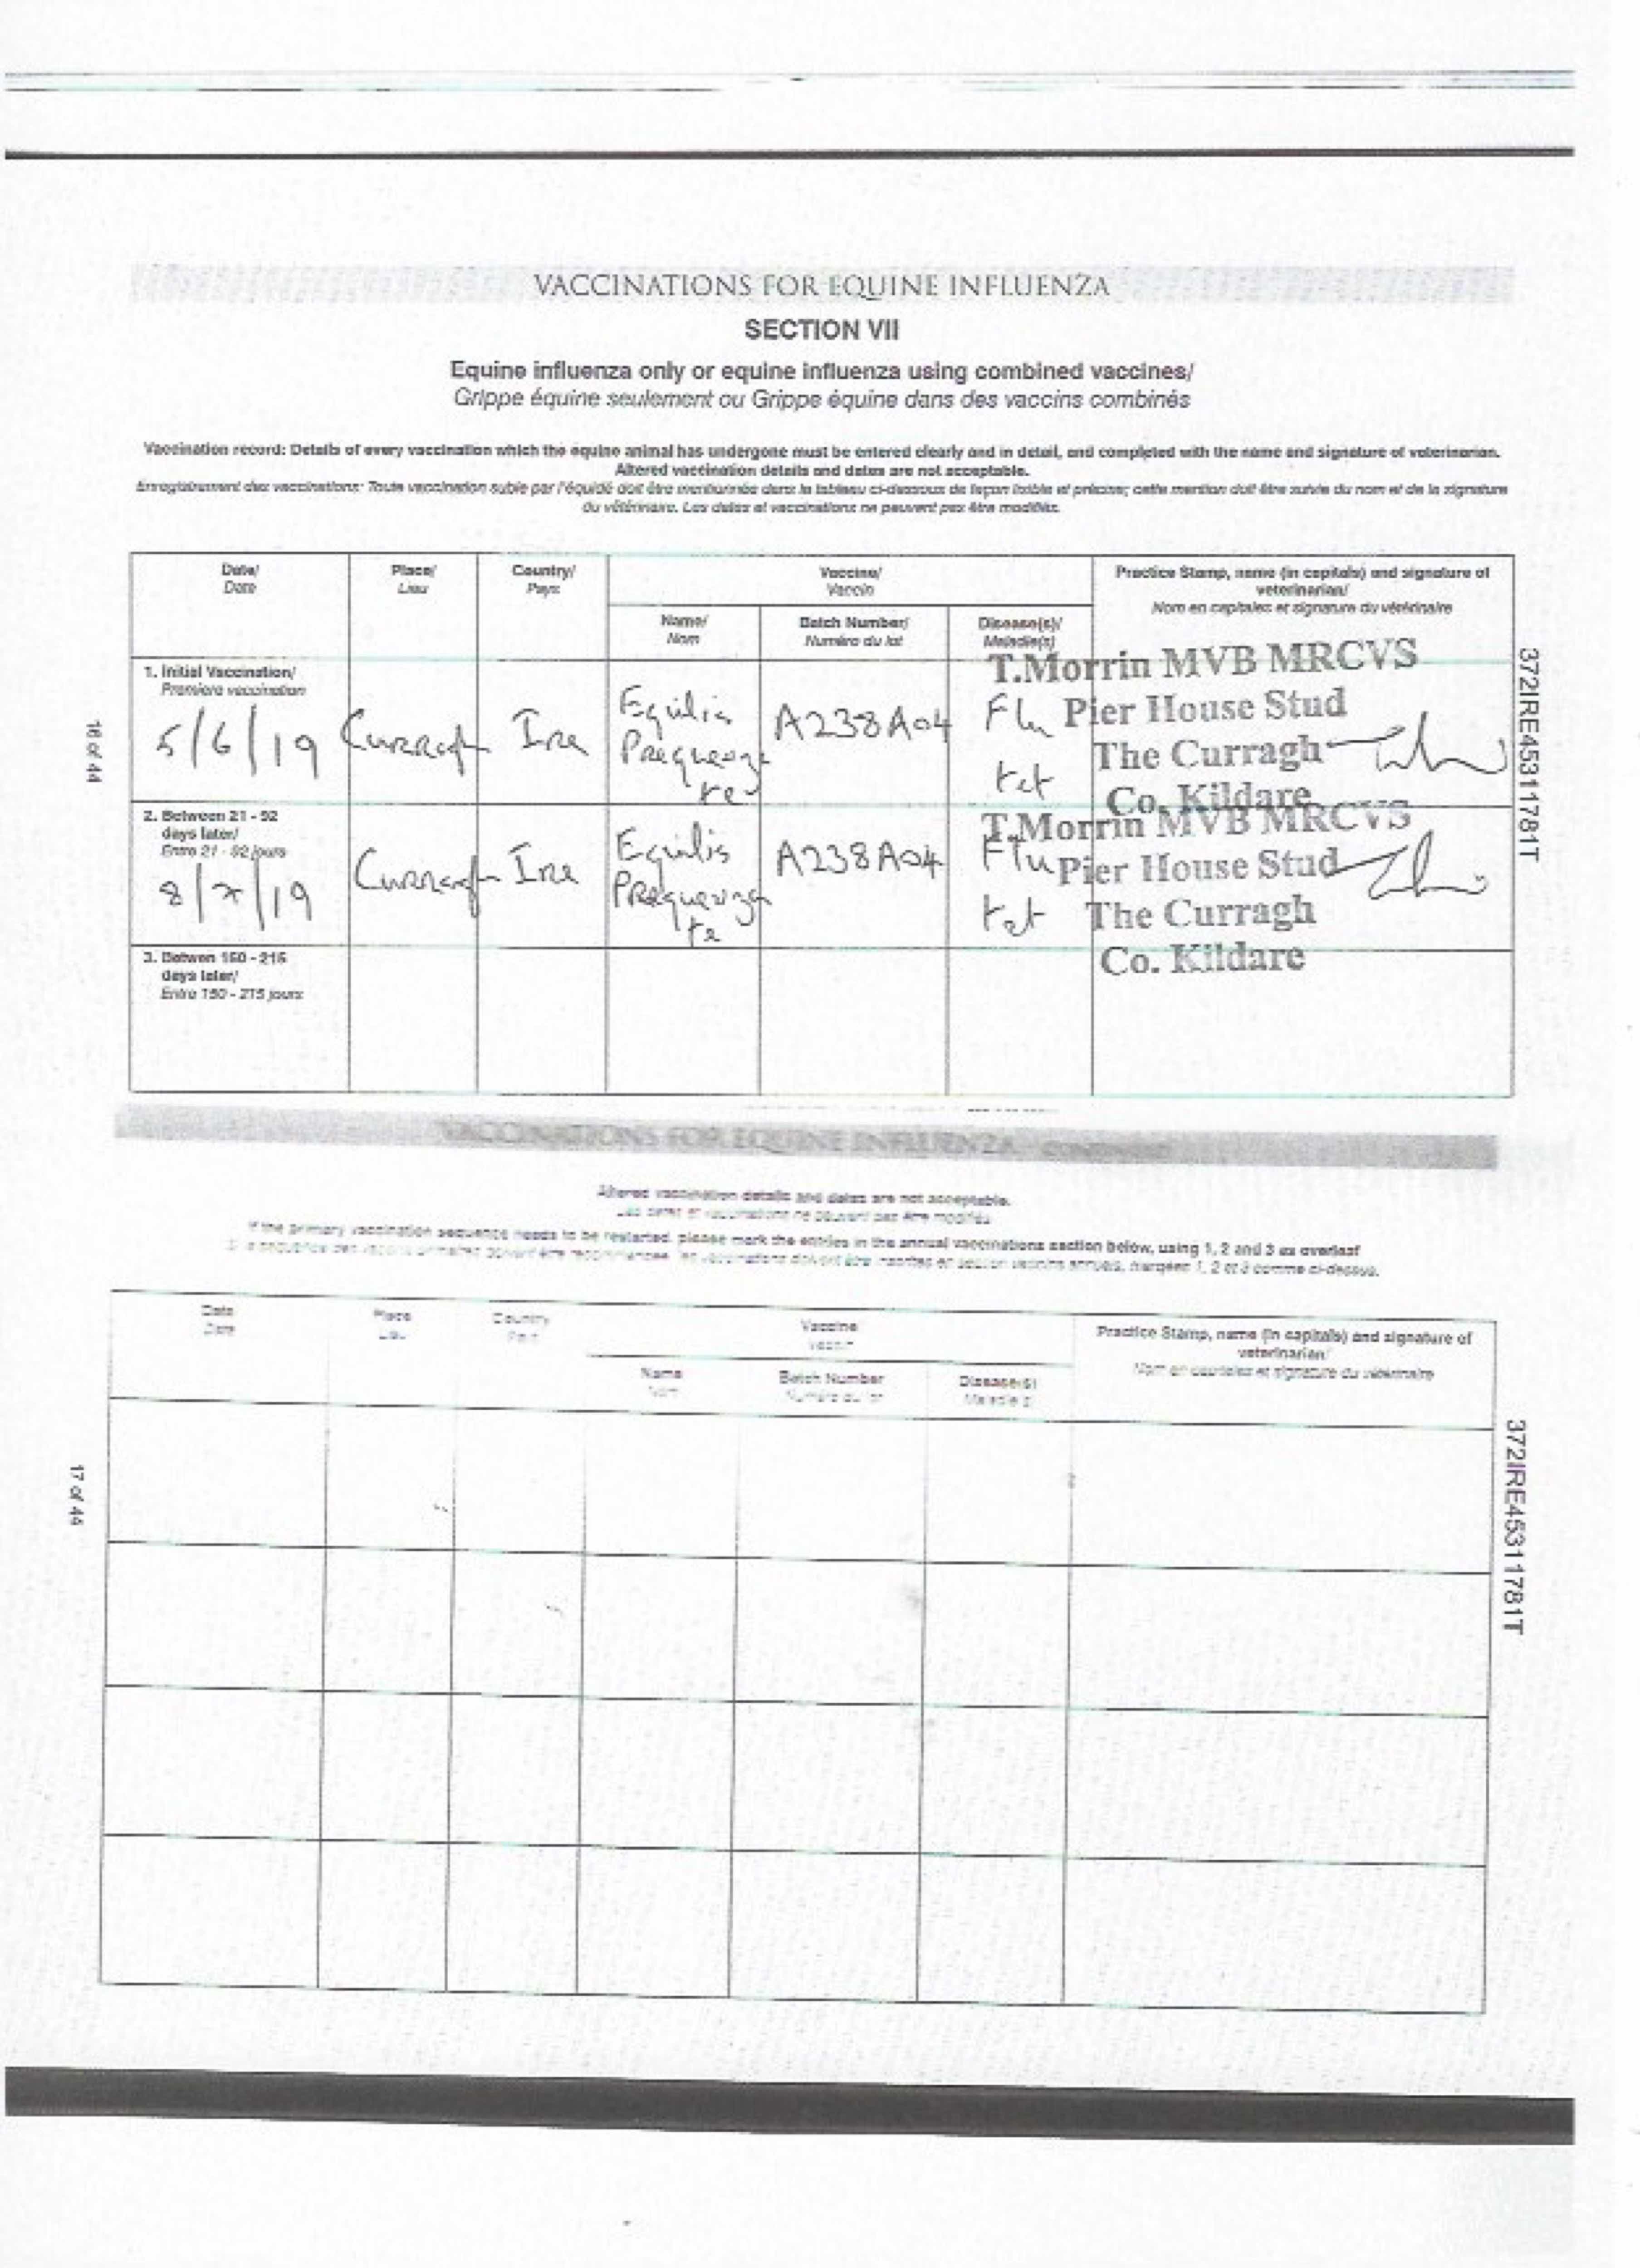 VACCINATIONS FOR EQUINE INFLUENZA
SECTION VII
Equine influenza only or equine influenza using combined vaccines/
Grippe équine seulement ou Grippe équine dans des vaccins combinés
Vaccination record: Details of every vaccination which the equine animal has undergone must be entered clearly and in detail, and completed with the name and signature of veterinarian.
Altered vaccination details and dates are not acceptable.
Enregistrement des vaccinations: Toute vaccination subie par l'équidé doit être mentionnée dans le tableau ci-dessous de façon lisible et précise; cette mention doit être suivie du nom et de la signature
du vétérinaire. Les dates et vaccinations ne peuvent pas être modifiés.
Date/
Date
Place/
Lieu
Country/
Pays
Vaccine/
Vaccin
Practice Stamp, name (in capitals) and signature of
veterinarian/
Nom en capitales et signature du vétérinaire
Name/
Nom
Batch Number/
Numéro du lot
Disease(s)/
Maladie(s)
1. Initial Vaccination/
Premiere vaccination
5/6/19
Curragh
Ire
Equilis
Prequenza
te
A238A04
Flu
tet
T.Morrin MVB MRCVS
Pier House Stud
The Curragh
Co. Kildare
2. Between 21 - 92
days later/
Entre 21 - 92 jours
8/7/19
Curragh
Ire
Equilis
Prequenza
te
A238A04
Flu
tet
T.Morrin MVB MRCVS
Pier House Stud
The Curragh
Co. Kildare
3. Betwen 150 - 215
days later/
Entre 150 - 215 jours
16 of 44
372IRE45311781T
VACCINATIONS FOR EQUINE INFLUENZA - CONTINUED
Altered vaccination details and dates are not acceptable.
Les dates et vaccinations ne peuvent pas être modifiés
If the primary vaccination sequence needs to be restarted, please mark the entries in the annual vaccinations section below, using 1, 2 and 3 as overleaf
vaccins annuels, marquées 1, 2 et 3 comme ci-dessus.
Date
Date
Place
Lieu
Country
Pays
Vaccine
Vaccin
Practice Stamp, name (in capitals) and signature of
veterinarian/
Nom en capitales et signature du vétérinaire
Name
Nom
Batch Number
Numéro du lot
Disease(s)
Maladie(s)
17 of 44
372IRE45311781T